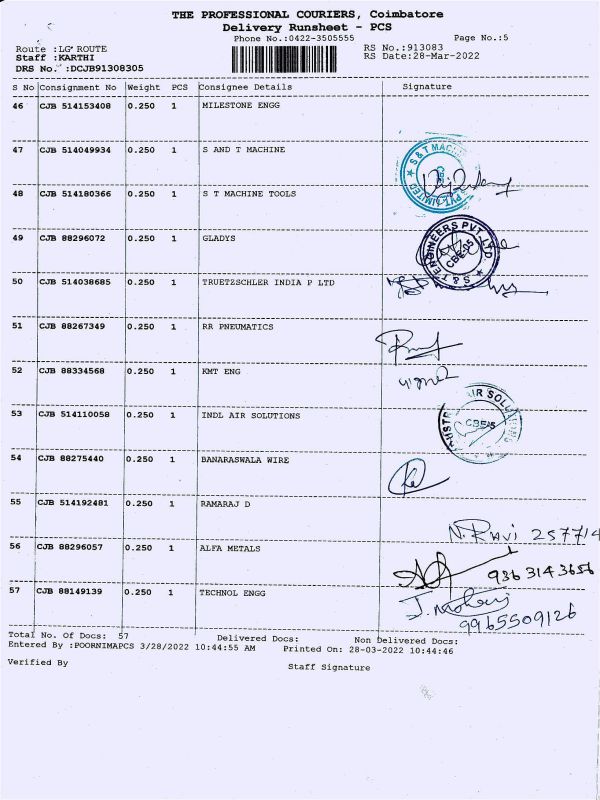 THE PROFESSIONAL COURIERS, Coimbatore
Delivery Runsheet - PCS
Phone No.:0422-3505555 Page No.:5
Route :LG ROUTE RS No.:913083
Staff :KARTHI RS Date:28-Mar-2022
DRS No. :DCJB91308305
S No Consignment No Weight PCS Consignee Details Signature
46 CJB 514153408 0.250 1 MILESTONE ENGG
47 CJB 514049934 0.250 1 S AND T MACHINE
S & T MACHI PVT. LIMITED CBE
48 CJB 514180366 0.250 1 S T MACHINE TOOLS
49 CJB 88296072 0.250 1 GLADYS
S & T ENGINEERS PVT. LTD CBE-05
50 CJB 514038685 0.250 1 TRUETZSCHLER INDIA P LTD
51 CJB 88267349 0.250 1 RR PNEUMATICS
52 CJB 88334568 0.250 1 KMT ENG
53 CJB 514110058 0.250 1 INDL AIR SOLUTIONS
IR SOLU CBE-5
54 CJB 88275440 0.250 1 BANARASWALA WIRE
55 CJB 514192481 0.250 1 RAMARAJ D
N. Ravi 257714
56 CJB 88296057 0.250 1 ALFA METALS
9363143656
57 CJB 88149139 0.250 1 TECHNOL ENGG
9965509126
Total No. Of Docs: 57 Delivered Docs: Non Delivered Docs:
Entered By :POORNIMAPCS 3/28/2022 10:44:55 AM Printed On: 28-03-2022 10:44:46
Verified By Staff Signature